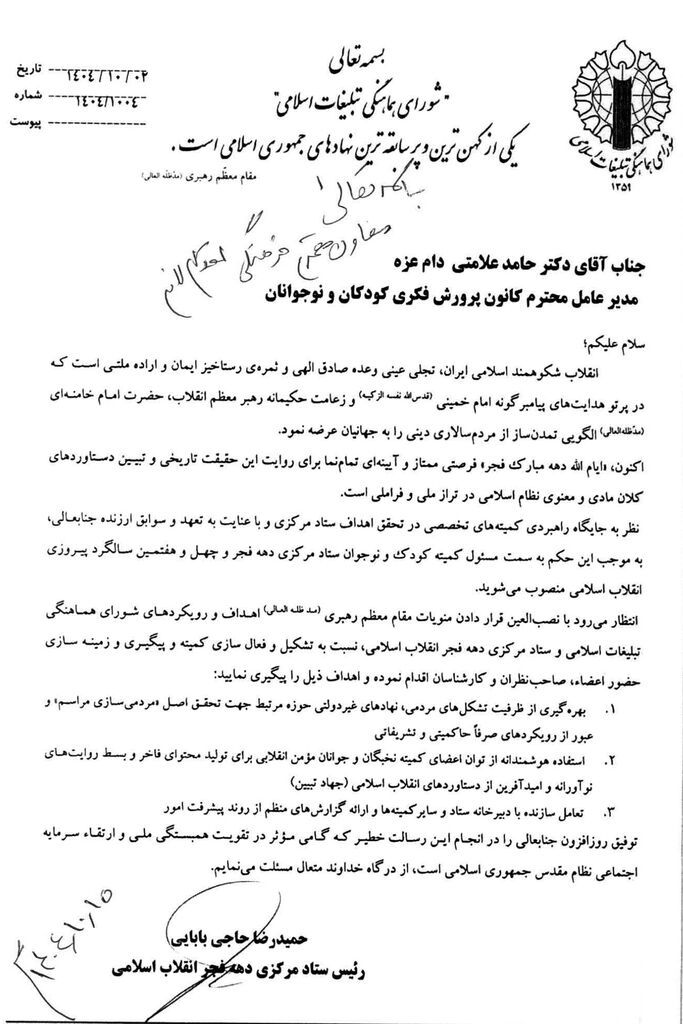 بسمه تعالی
"شورای هماهنگی تبلیغات اسلامی"
یکی از کهن ترین و پرسابقه ترین نهادهای جمهوری اسلامی است.
مقام معظّم رهبری (مدّظلّه العالی)
تاریخ ۱۴۰۴/۱۰/۰۲
شماره ۱۴۰۴/۱۰۰۴
پیوست
شورای هماهنگی تبلیغات اسلامی
۱۳۵۹
باسمه تعالی
معاون محترم فرهنگی
جناب آقای دکتر حامد علامتی دام عزه
مدیر عامل محترم کانون پرورش فکری کودکان و نوجوانان
سلام علیکم؛
انقلاب شکوهمند اسلامی ایران، تجلی عینی وعده صادق الهی و ثمره‌ی رستاخیز ایمان و اراده ملتی است که
در پرتو هدایت‌های پیامبرگونه امام خمینی (قدس‌الله نفسه الزکیه) و زعامت حکیمانه رهبر معظم انقلاب، حضرت امام خامنه‌ای
(مدّظله‌العالی) الگویی تمدن‌ساز از مردم‌سالاری دینی را به جهانیان عرضه نمود.
اکنون، «ایام الله دهه مبارک فجر» فرصتی ممتاز و آیینه‌ای تمام‌نما برای روایت این حقیقت تاریخی و تبیین دستاوردهای
کلان مادی و معنوی نظام اسلامی در تراز ملی و فراملی است.
نظر به جایگاه راهبردی کمیته‌های تخصصی در تحقق اهداف ستاد مرکزی و با عنایت به تعهد و سوابق ارزنده جنابعالی،
به موجب این حکم به سمت مسئول کمیته کودک و نوجوان ستاد مرکزی دهه فجر و چهل و هفتمین سالگرد پیروزی
انقلاب اسلامی منصوب می‌شوید.
انتظار می‌رود با نصب‌العین قرار دادن منویات مقام معظم رهبری (مد ظله العالی) اهداف و رویکردهای شورای هماهنگی
تبلیغات اسلامی و ستاد مرکزی دهه فجر انقلاب اسلامی، نسبت به تشکیل و فعال سازی کمیته و پیگیری و زمینه سازی
حضور اعضاء، صاحب‌نظران و کارشناسان اقدام نموده و اهداف ذیل را پیگیری نمایید:
۱. بهره‌گیری از ظرفیت تشکل‌های مردمی، نهادهای غیردولتی حوزه مرتبط جهت تحقق اصل «مردمی‌سازی مراسم» و
عبور از رویکردهای صرفاً حاکمیتی و تشریفاتی
۲. استفاده هوشمندانه از توان اعضای کمیته نخبگان و جوانان مؤمن انقلابی برای تولید محتوای فاخر و بسط روایت‌های
نوآورانه و امیدآفرین از دستاوردهای انقلاب اسلامی (جهاد تبیین)
۳. تعامل سازنده با دبیرخانه ستاد و سایرکمیته‌ها و ارائه گزارش‌های منظم از روند پیشرفت امور
توفیق روزافزون جنابعالی را در انجام این رسالت خطیر که گامی مؤثر در تقویت همبستگی ملی و ارتقاء سرمایه
اجتماعی نظام مقدس جمهوری اسلامی است، از درگاه خداوند متعال مسئلت می‌نمایم.
حمیدرضا حاجی بابایی
رئیس ستاد مرکزی دهه فجر انقلاب اسلامی
۱۴۰۴/۱۰/۱۵